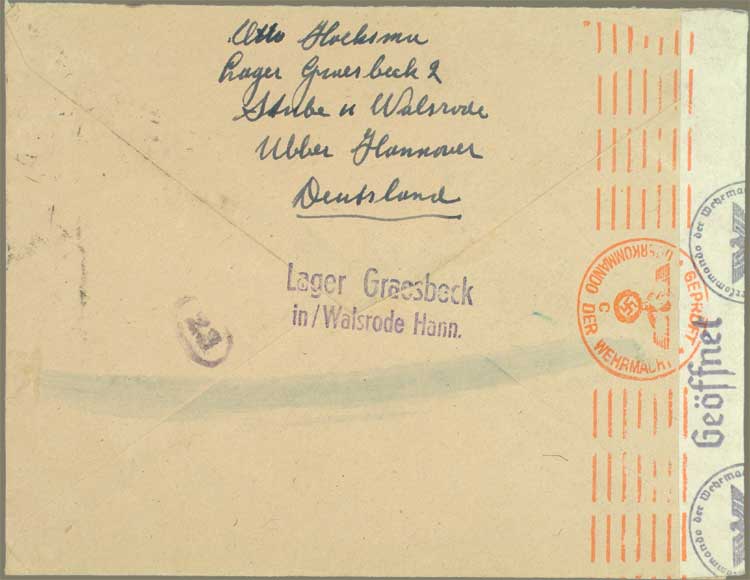 Otto Hoeksma
Lager Graesbeck 2
Stube 11 Walsrode
Ubber Hannover
Deutsland
Lager Graesbeck
in/Walsrode Hann.
23
OBERKOMMANDO DER WEHRMACHT
GEPRÜFT
C
Geöffnet
Oberkommando der Wehrmacht
Oberkommando der Wehrmacht